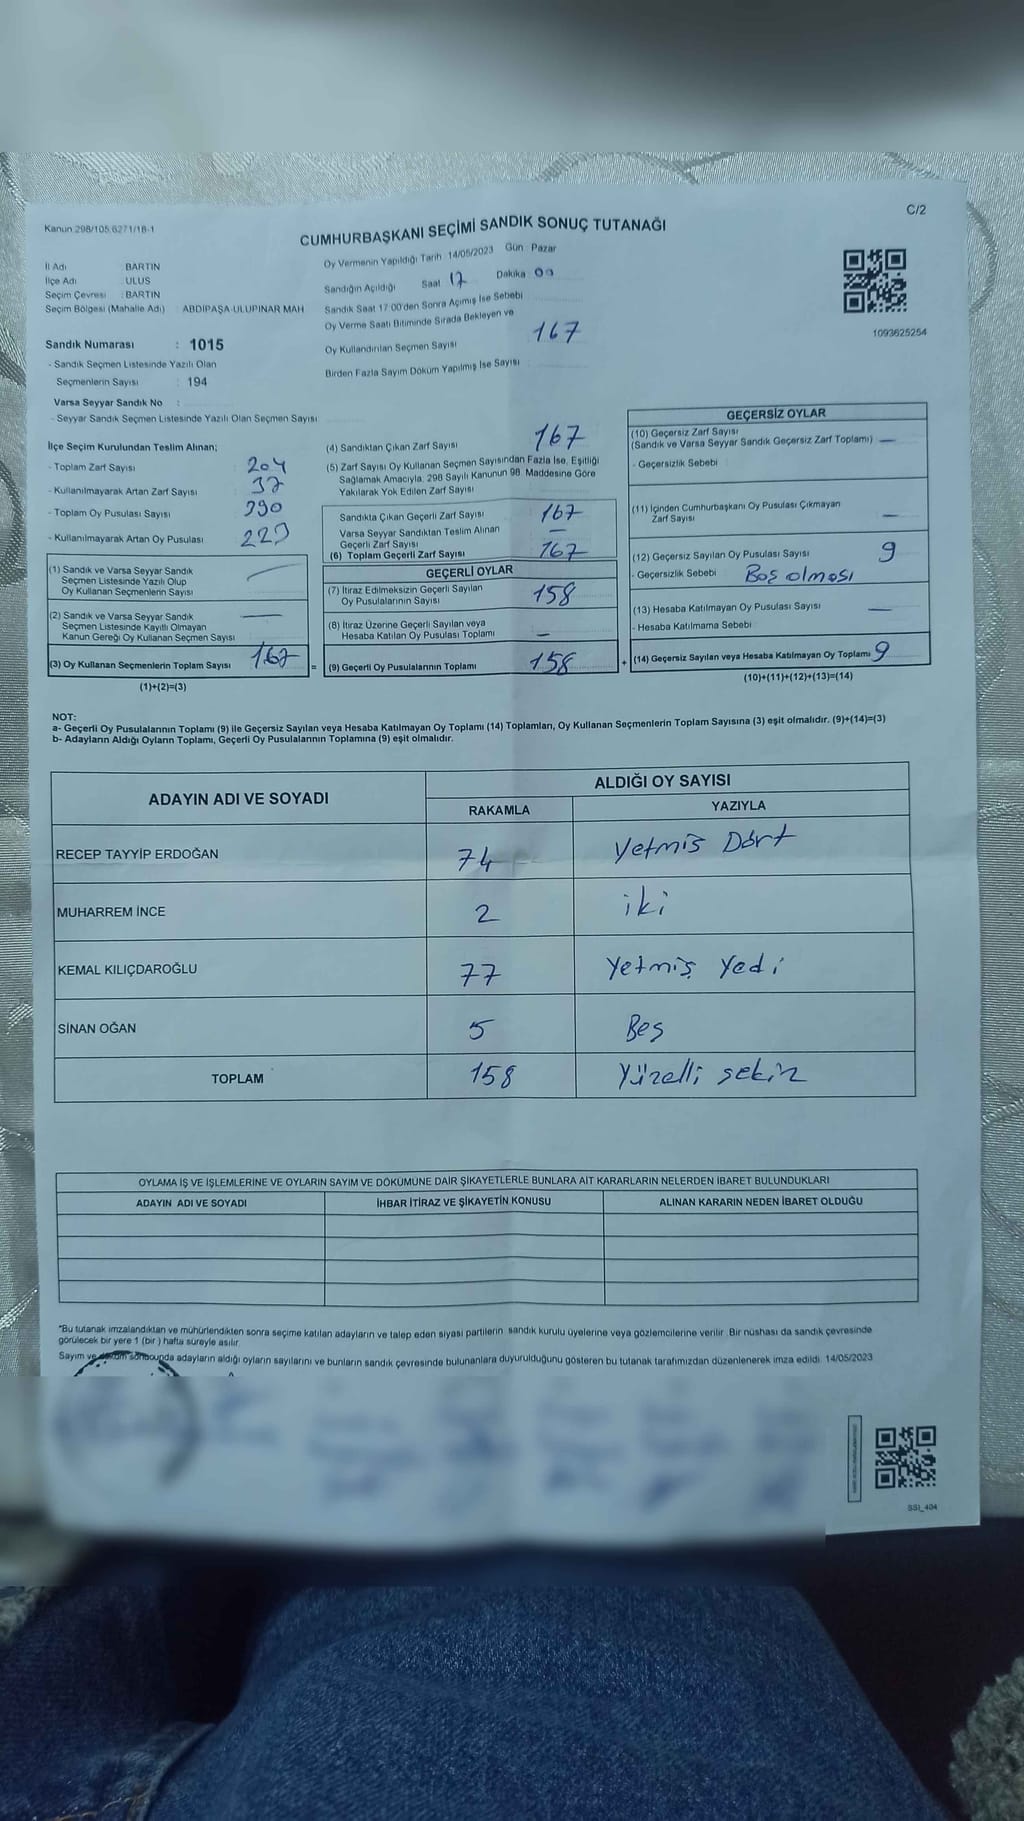 C/2
Kanun 298/105 6271/18-1
CUMHURBAŞKANI SEÇİMİ SANDIK SONUÇ TUTANAĞI
İl Adı BARTIN
İlçe Adı : ULUS
Seçim Çevresi : BARTIN
Seçim Bölgesi (Mahalle Adı) : ABDİPAŞA-ULUPINAR MAH
Oy Vermenin Yapıldığı Tarih 14/05/2023 Gün : Pazar
Sandığın Açıldığı Saat 17 Dakika 00
Sandık Saat 17 00'den Sonra Açılmış İse Sebebi
Oy Verme Saati Bitiminde Sırada Bekleyen ve
Oy Kullandırılan Seçmen Sayısı 167
Birden Fazla Sayım Döküm Yapılmış İse Sayısı
1093625254
Sandık Numarası : 1015
- Sandık Seçmen Listesinde Yazılı Olan
Seçmenlerin Sayısı : 194
Varsa Seyyar Sandık No :
- Seyyar Sandık Seçmen Listesinde Yazılı Olan Seçmen Sayısı
İlçe Seçim Kurulundan Teslim Alınan;
- Toplam Zarf Sayısı 204
- Kullanılmayarak Artan Zarf Sayısı 37
- Toplam Oy Pusulası Sayısı 390
- Kullanılmayarak Artan Oy Pusulası 223
(1) Sandık ve Varsa Seyyar Sandık
Seçmen Listesinde Yazılı Olup
Oy Kullanan Seçmenlerin Sayısı
(2) Sandık ve Varsa Seyyar Sandık
Seçmen Listesinde Kayıtlı Olmayan
Kanun Gereği Oy Kullanan Seçmen Sayısı
(3) Oy Kullanan Seçmenlerin Toplam Sayısı 167 =
(1)+(2)=(3)
(4) Sandıktan Çıkan Zarf Sayısı 167
(5) Zarf Sayısı Oy Kullanan Seçmen Sayısından Fazla İse, Eşitliği
Sağlamak Amacıyla, 298 Sayılı Kanunun 98. Maddesine Göre
Yakılarak Yok Edilen Zarf Sayısı
Sandıkta Çıkan Geçerli Zarf Sayısı 167
Varsa Seyyar Sandıktan Teslim Alınan
Geçerli Zarf Sayısı —
(6) Toplam Geçerli Zarf Sayısı 167
GEÇERLİ OYLAR
(7) İtiraz Edilmeksizin Geçerli Sayılan
Oy Pusulalarının Sayısı 158
(8) İtiraz Üzerine Geçerli Sayılan veya
Hesaba Katılan Oy Pusulası Toplamı —
(9) Geçerli Oy Pusulalarının Toplamı 158 +
GEÇERSİZ OYLAR
(10) Geçersiz Zarf Sayısı
(Sandık ve Varsa Seyyar Sandık Geçersiz Zarf Toplamı) —
- Geçersizlik Sebebi
(11) İçinden Cumhurbaşkanı Oy Pusulası Çıkmayan
Zarf Sayısı —
(12) Geçersiz Sayılan Oy Pusulası Sayısı 9
- Geçersizlik Sebebi Boş olması
(13) Hesaba Katılmayan Oy Pusulası Sayısı —
- Hesaba Katılmama Sebebi
(14) Geçersiz Sayılan veya Hesaba Katılmayan Oy Toplamı 9
(10)+(11)+(12)+(13)=(14)
NOT:
a- Geçerli Oy Pusulalarının Toplamı (9) ile Geçersiz Sayılan veya Hesaba Katılmayan Oy Toplamı (14) Toplamları, Oy Kullanan Seçmenlerin Toplam Sayısına (3) eşit olmalıdır. (9)+(14)=(3)
b- Adayların Aldığı Oyların Toplamı, Geçerli Oy Pusulalarının Toplamına (9) eşit olmalıdır.
ADAYIN ADI VE SOYADI ALDIĞI OY SAYISI
RAKAMLA YAZIYLA
RECEP TAYYİP ERDOĞAN 74 Yetmiş Dört
MUHARREM İNCE 2 iki
KEMAL KILIÇDAROĞLU 77 Yetmiş Yedi
SİNAN OĞAN 5 Beş
TOPLAM 158 Yüzelli sekiz
OYLAMA İŞ VE İŞLEMLERİNE VE OYLARIN SAYIM VE DÖKÜMÜNE DAİR ŞİKAYETLERLE BUNLARA AİT KARARLARIN NELERDEN İBARET BULUNDUKLARI
ADAYIN ADI VE SOYADI İHBAR İTİRAZ VE ŞİKAYETİN KONUSU ALINAN KARARIN NEDEN İBARET OLDUĞU
*Bu tutanak imzalandıktan ve mühürlendikten sonra seçime katılan adayların ve talep eden siyasi partilerin sandık kurulu üyelerine veya gözlemcilerine verilir. Bir nüshası da sandık çevresinde
görülecek bir yere 1 (bir) hafta süreyle asılır.
Sayım ve döküm sonucunda adayların aldığı oyların sayılarını ve bunların sandık çevresinde bulunanlara duyurulduğunu gösteren bu tutanak tarafımızdan düzenlenerek imza edildi. 14/05/2023
SSI_404